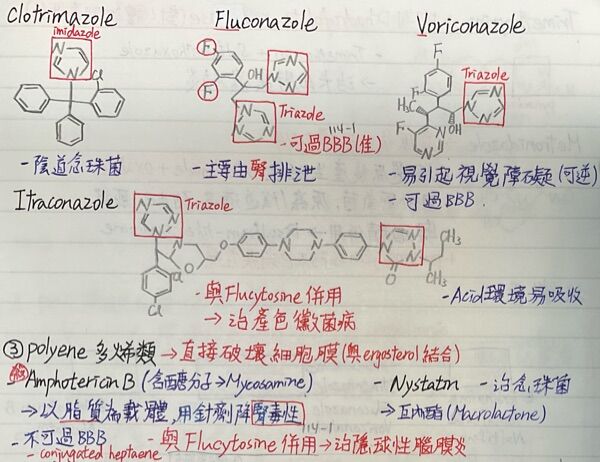 Clotrimazole
imidazole
N
N
Cl
-陰道念珠菌
Fluconazole
F
F
OH
Triazole
114-1
-可過BBB(佳)
-主要由腎排泄
Voriconazole
F
F
H3C
F
OH
Triazole
-易引起視覺障礙(可逆)
-可過BBB.
Itraconazole
Triazole
O
O
O
Cl
Cl
N
N
O
CH3
CH3
-與Flucytosine併用
→治產色黴菌病
-Acid環境易吸收
③polyene 多烯類→直接破壞細胞膜(與ergosterol結合)
Amphotericin B (含醣分子→Mycosamine)
→以脂質為載體,用針劑降腎毒性
-不可過BBB
-conjugated heptaene
114-1
-與Flucytosine併用→治隱球性腦膜炎
-Nystatin -治念珠菌
→互內酯(Macrolactone)